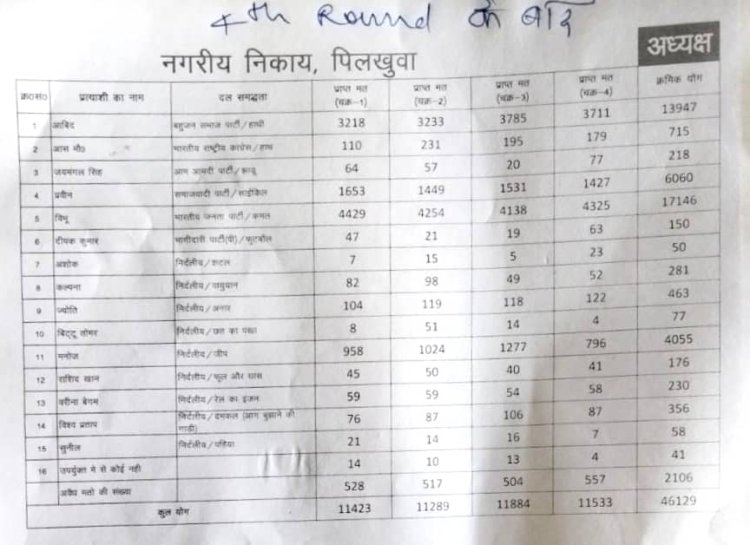 4th Round के बाद
अध्यक्ष
नगरीय निकाय, पिलखुवा
क्र०सं० प्रत्याशी का नाम दल सम्बद्धता प्राप्त मत (चक्र-1) प्राप्त मत (चक्र-2) प्राप्त मत (चक्र-3) प्राप्त मत (चक्र-4) क्रमिक योग
1 आबिद बहुजन समाज पार्टी/हाथी 3218 3233 3785 3711 13947
2 आस मौ० भारतीय राष्ट्रीय कांग्रेस/हाथ 110 231 195 179 715
3 जयमंगल सिंह आम आदमी पार्टी/झाडू 64 57 20 77 218
4 प्रवीन समाजवादी पार्टी/साईकिल 1653 1449 1531 1427 6060
5 विभू भारतीय जनता पार्टी/कमल 4429 4254 4138 4325 17146
6 दीपक कुमार भागीदारी पार्टी(पी)/फुटबॉल 47 21 19 63 150
7 अशोक निर्दलीय/शटल 7 15 5 23 50
8 कल्पना निर्दलीय/वायुयान 82 98 49 52 281
9 ज्योति निर्दलीय/अनार 104 119 118 122 463
10 बिट्टू तोमर निर्दलीय/छत का पंखा 8 51 14 4 77
11 मनोज निर्दलीय/जीप 958 1024 1277 796 4055
12 राशिद खान निर्दलीय/फूल और घास 45 50 40 41 176
13 वरीना बेगम निर्दलीय/रेल का इंजन 59 59 54 58 230
14 विश्व प्रताप निर्दलीय/दमकल (आग बुझाने की गाड़ी) 76 87 106 87 356
15 सुनील निर्दलीय/पहिया 21 14 16 7 58
16 उपर्युक्त मे से कोई नही 14 10 13 4 41
अवैध मतो की संख्या 528 517 504 557 2106
कुल योग 11423 11289 11884 11533 46129